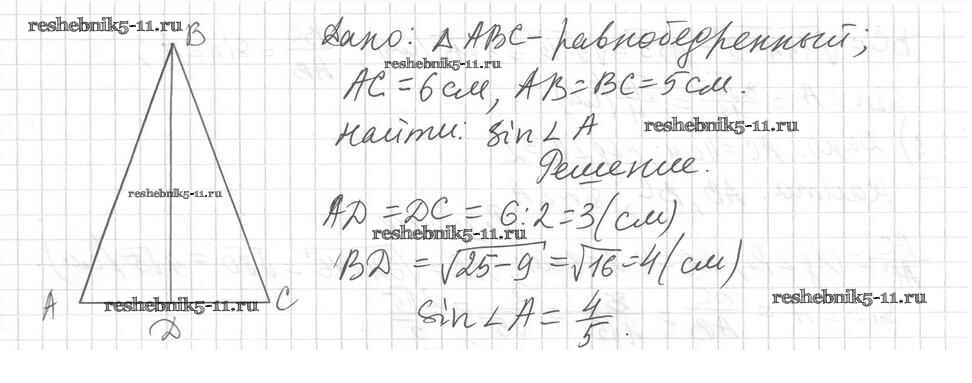 reshebnik5-11.ru
B
Дано: Δ ABC - равнобедренный;
reshebnik5-11.ru
AC = 6 см, AB = BC = 5 см.
Найти: sin∠A
reshebnik5-11.ru
Решение.
reshebnik5-11.ru
AD = DC = 6:2 = 3 (см)
reshebnik5-11.ru
BD = √25-9 = √16 = 4 (см)
A
reshebnik5-11.ru
C
reshebnik5-11.ru
D
sin∠A = 4/5.